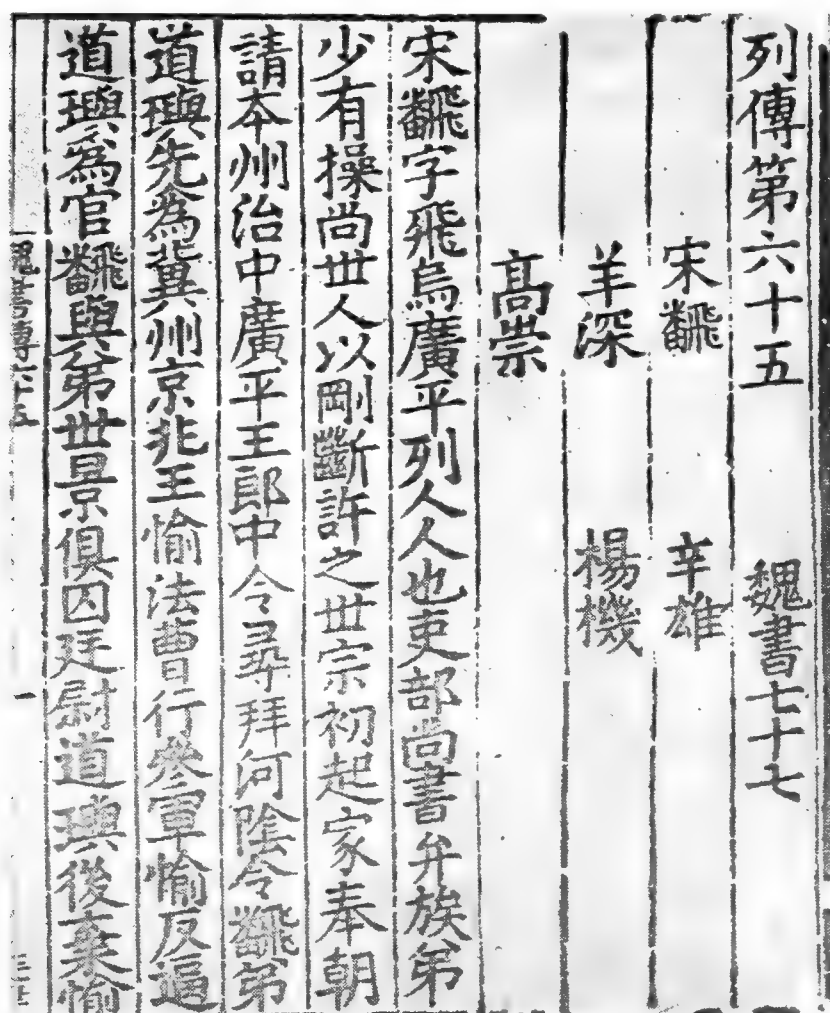 列傳第六十五　魏書七十七
宋飜　辛雄
羊深　楊機
髙崇
宋飜字飛烏廣平列人人也吏部尚書弁族弟
少有操尚世人以剛斷許之世宗初起家奉朝
請本州治中廣平王郎中令尋拜河陰令飜弟
道璵先為冀州京兆王愉法曹行參軍愉反逼
道璵為官飜與弟世景俱囚廷尉道璵後棄愉
魏書傳六十五　一